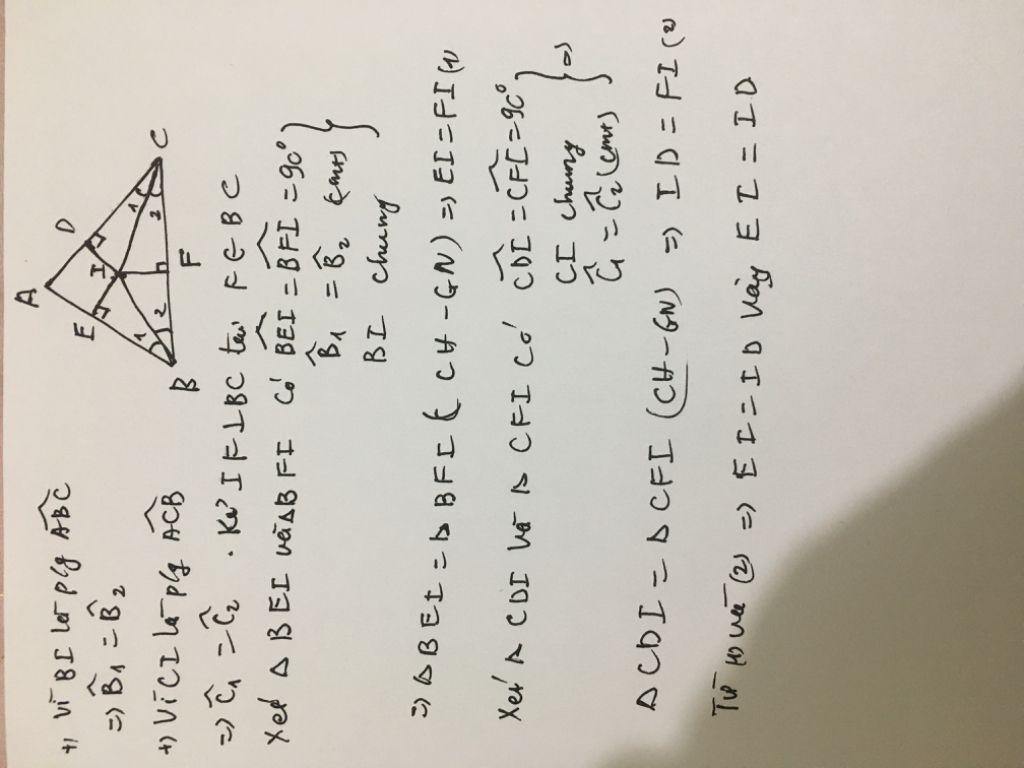 +) Vì BI là p/g \widehat{ABC}
=> \widehat{B}_1 = \widehat{B}_2
+) Vì CI là p/g \widehat{ACB}
=> \widehat{C}_1 = \widehat{C}_2 . Kẻ IF⊥BC tại F∈BC
A
D
E
I
1
1
2
2
B
F
C
Xét Δ BEI và Δ BFI có \widehat{BEI} = \widehat{BFI} = 90°
\widehat{B}_1 = \widehat{B}_2 (cmt)
BI chung
=> Δ BEI = Δ BFI (CH-GN) => EI = FI (1)
Xét Δ CDI và Δ CFI có \widehat{CDI} = \widehat{CFI} = 90°
CI chung
\widehat{C}_1 = \widehat{C}_2 (cmt) =>
Δ CDI = Δ CFI (CH-GN) => ID = FI (2)
Từ (1) và (2) => EI = ID Vậy EI = ID